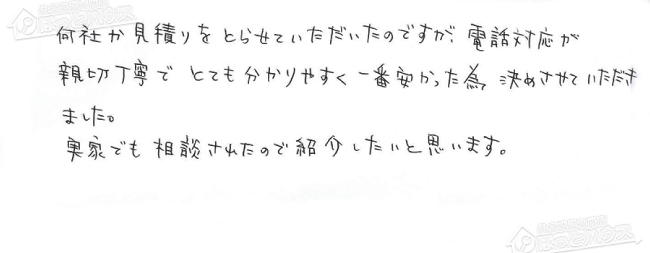 何社か見積りをとらせていただいたのですが、電話対応が
親切丁寧でとても分かりやすく一番安かった為、決めさせていただき
ました。
実家でも相談されたので紹介したいと思います。